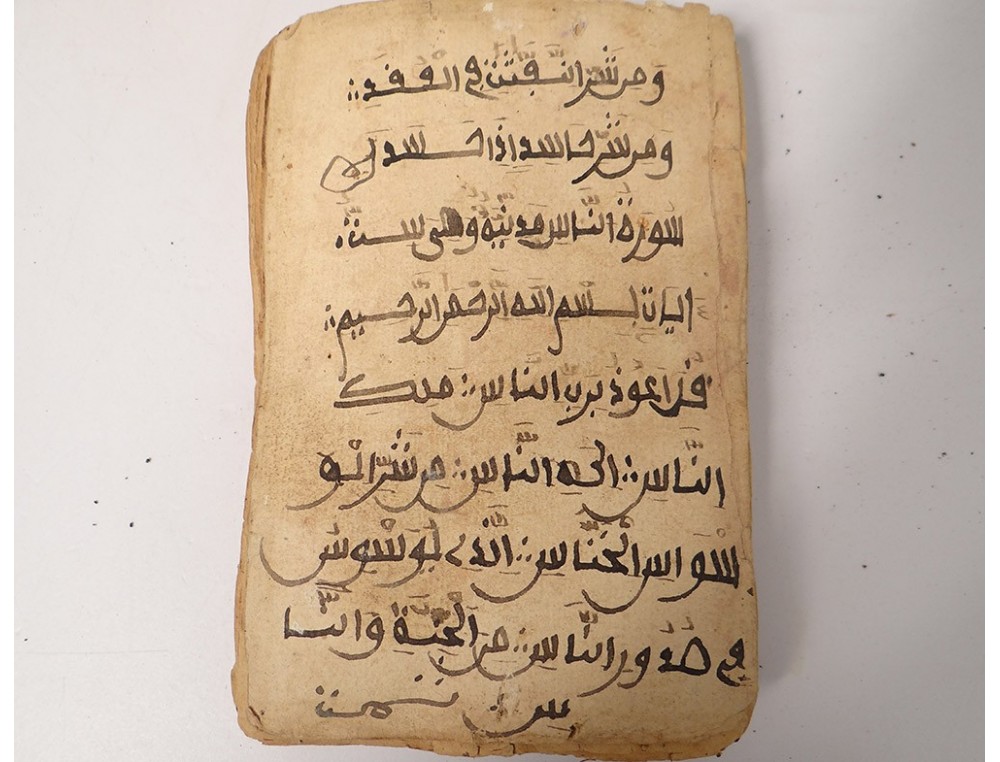 وَمِن شَرِّ النَّفَّٰثَٰتِ فِي الْعُقَدِ
وَمِن شَرِّ حَاسِدٍ اِذَا حَسَدَ
سُورَةُ النَّاسِ مَدَنِيَّةٌ وَهِىَ سِتَّةُ
ايات بِسْمِ اللهِ الرَّحْمٰنِ الرَّحِيمِ
قُلْ اَعُوذُ بِرَبِّ النَّاسِ مَلِكِ
النَّاسِ اِلَٰهِ النَّاسِ مِن شَرِّ الْوَ
سْوَاسِ الْخَنَّاسِ الَّذِے يُوَسْوِسُ
فِے صُدُورِ النَّاسِ مِنَ الْجِنَّةِ وَالنَّا
سِ تمت